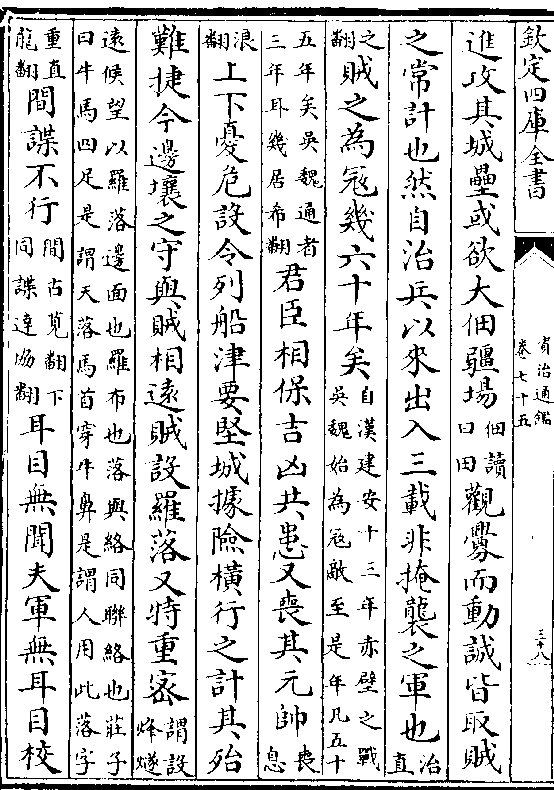 欽定四庫全書
資治通鑑
卷七十五
三十八
進攻其城壘或欲大佃疆場佃讀曰田觀釁而動誠皆取賊
之常計也然自治兵以來出入三載非掩襲之軍也治直
之翻賊之為冦幾六十年矣自漢建安十三年赤壁之戰吳魏始為冦敵至是年凡五十
五年矣吳魏通者三年耳幾居希翻君臣相保吉凶共患又喪其元帥喪息
浪翻上下憂危設令列船津要堅城據險橫行之計其殆
難捷今邊壤之守與賊相遠賊設羅落又特重宻謂設烽燧
遠候望以羅落邊面也羅布也落與絡同聯絡也莊子曰牛馬四足是謂天落馬首穿牛鼻是謂人用此落字
重直龍翻間諜不行間古莧翻下同諜達協翻耳目無聞夫軍無耳目校